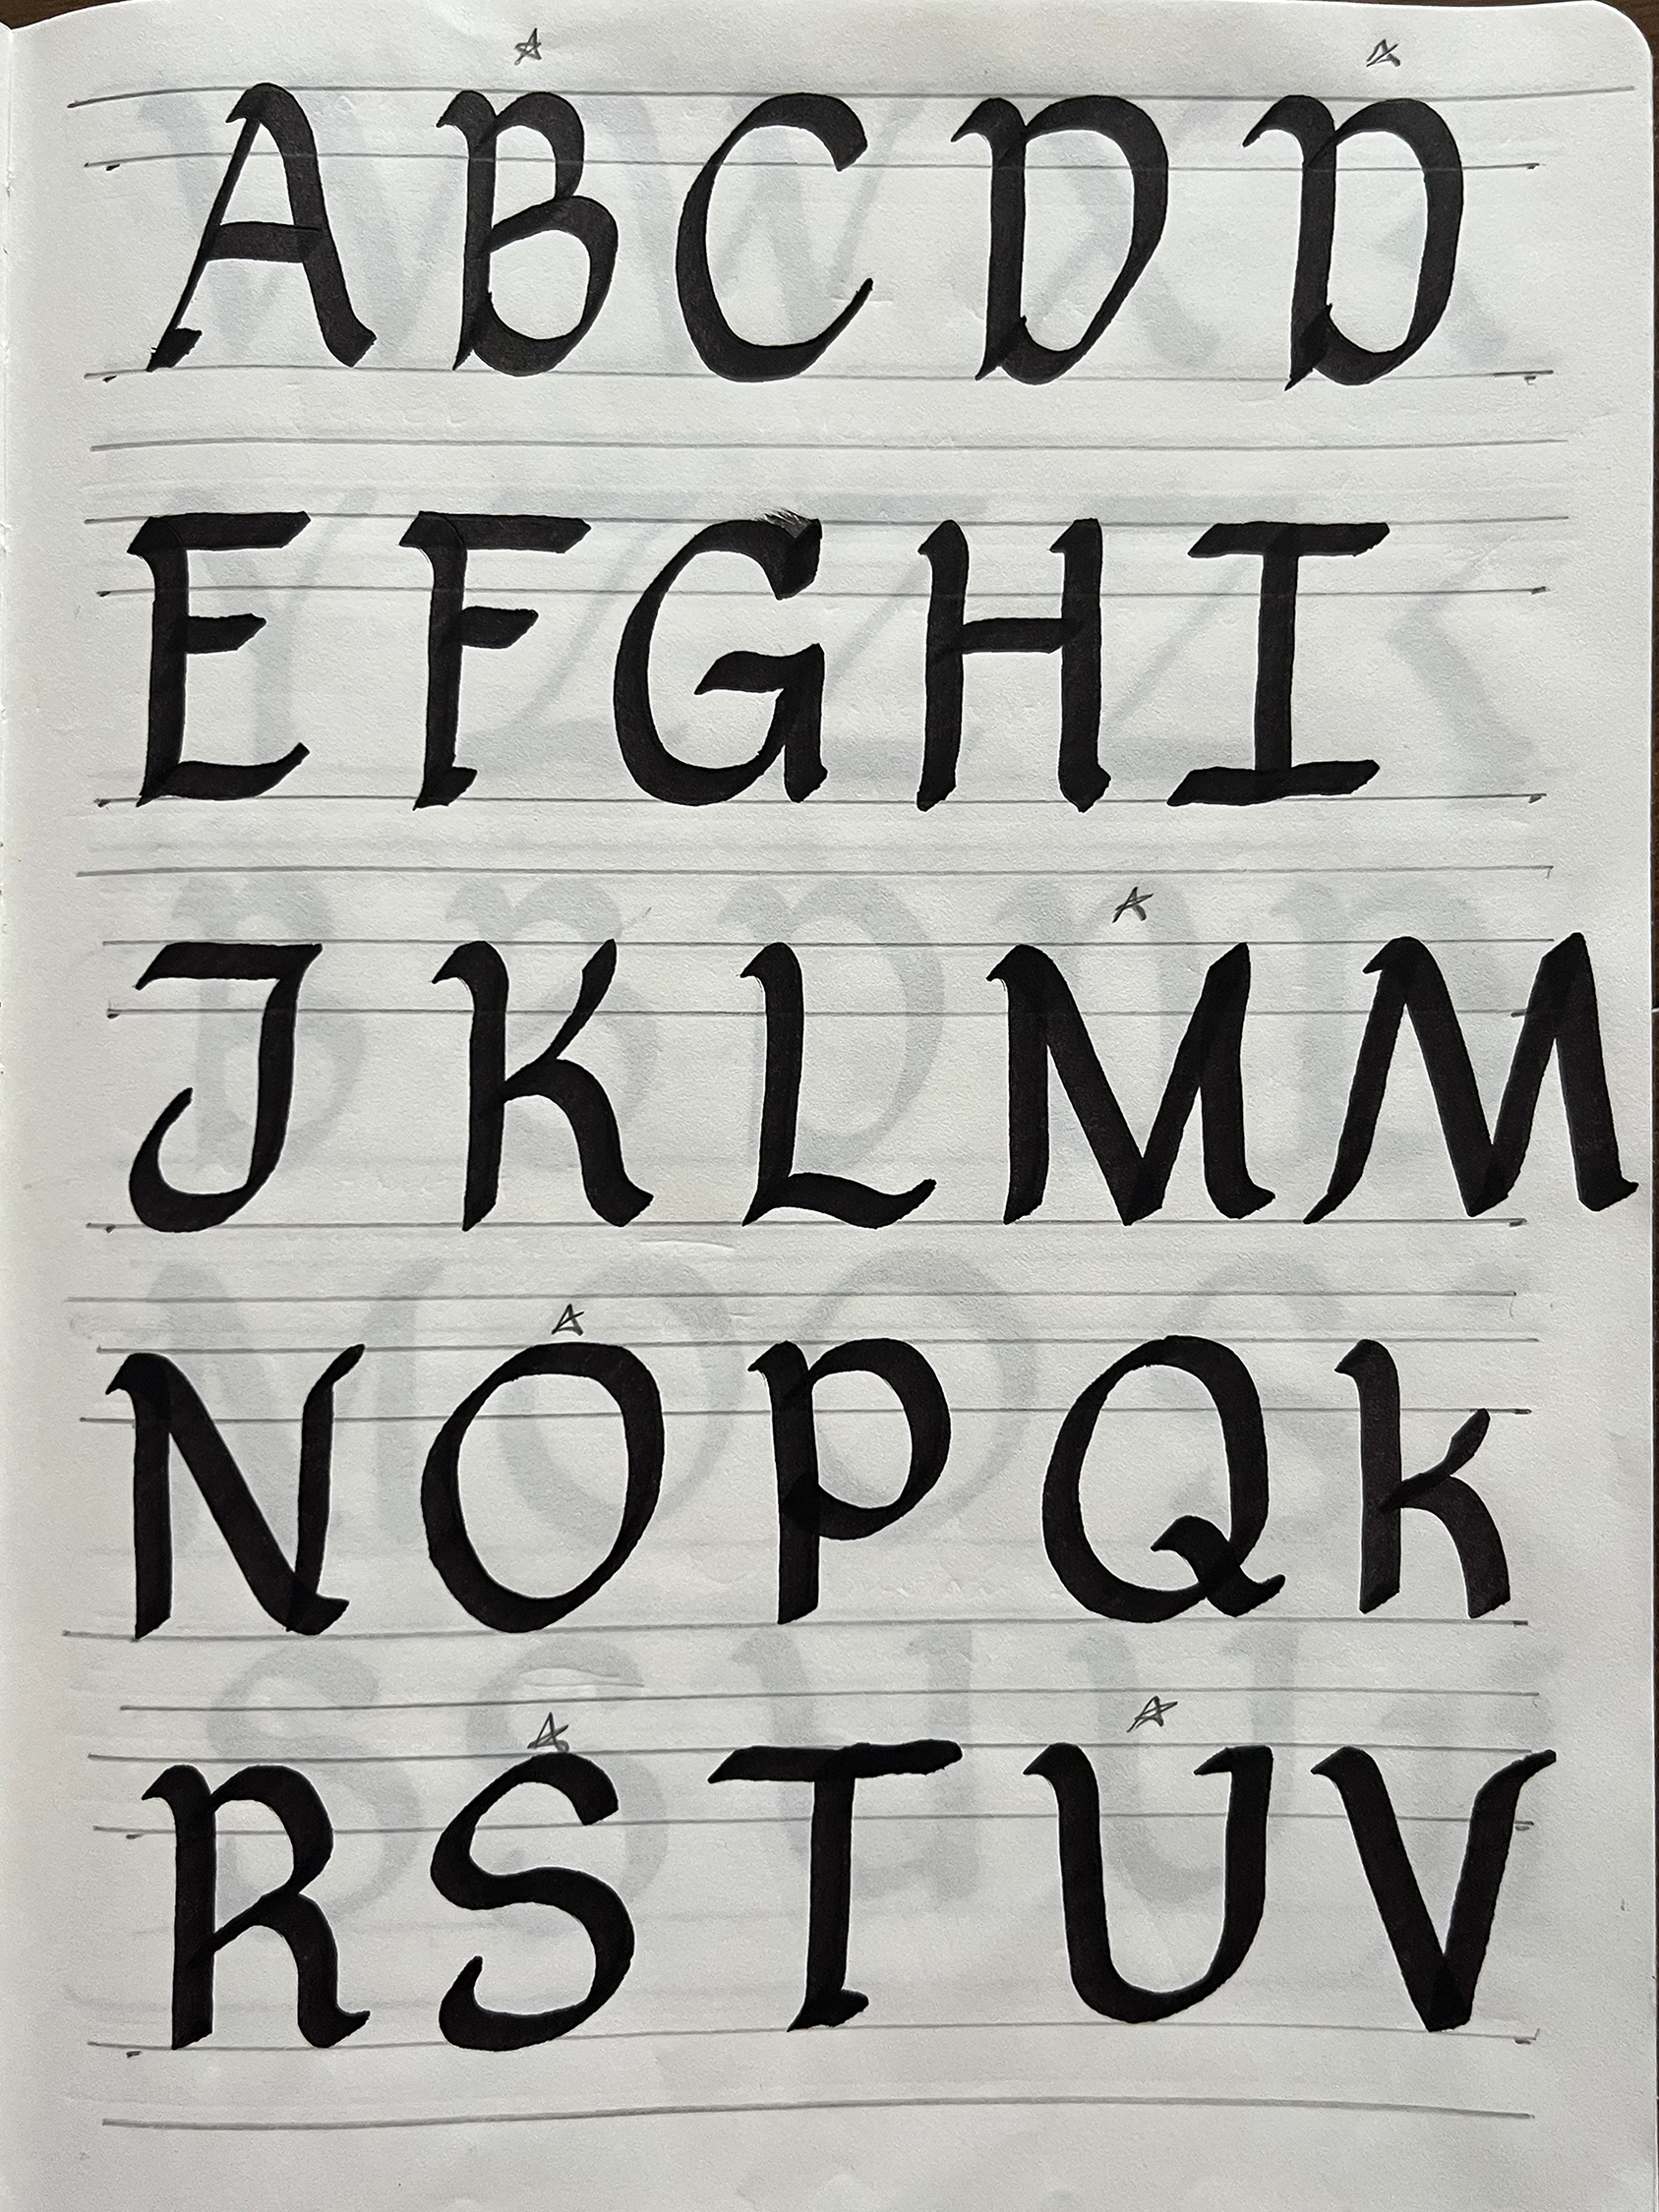 A B C D D
E F G H I
J K L M M
N O P Q k
R S T U V